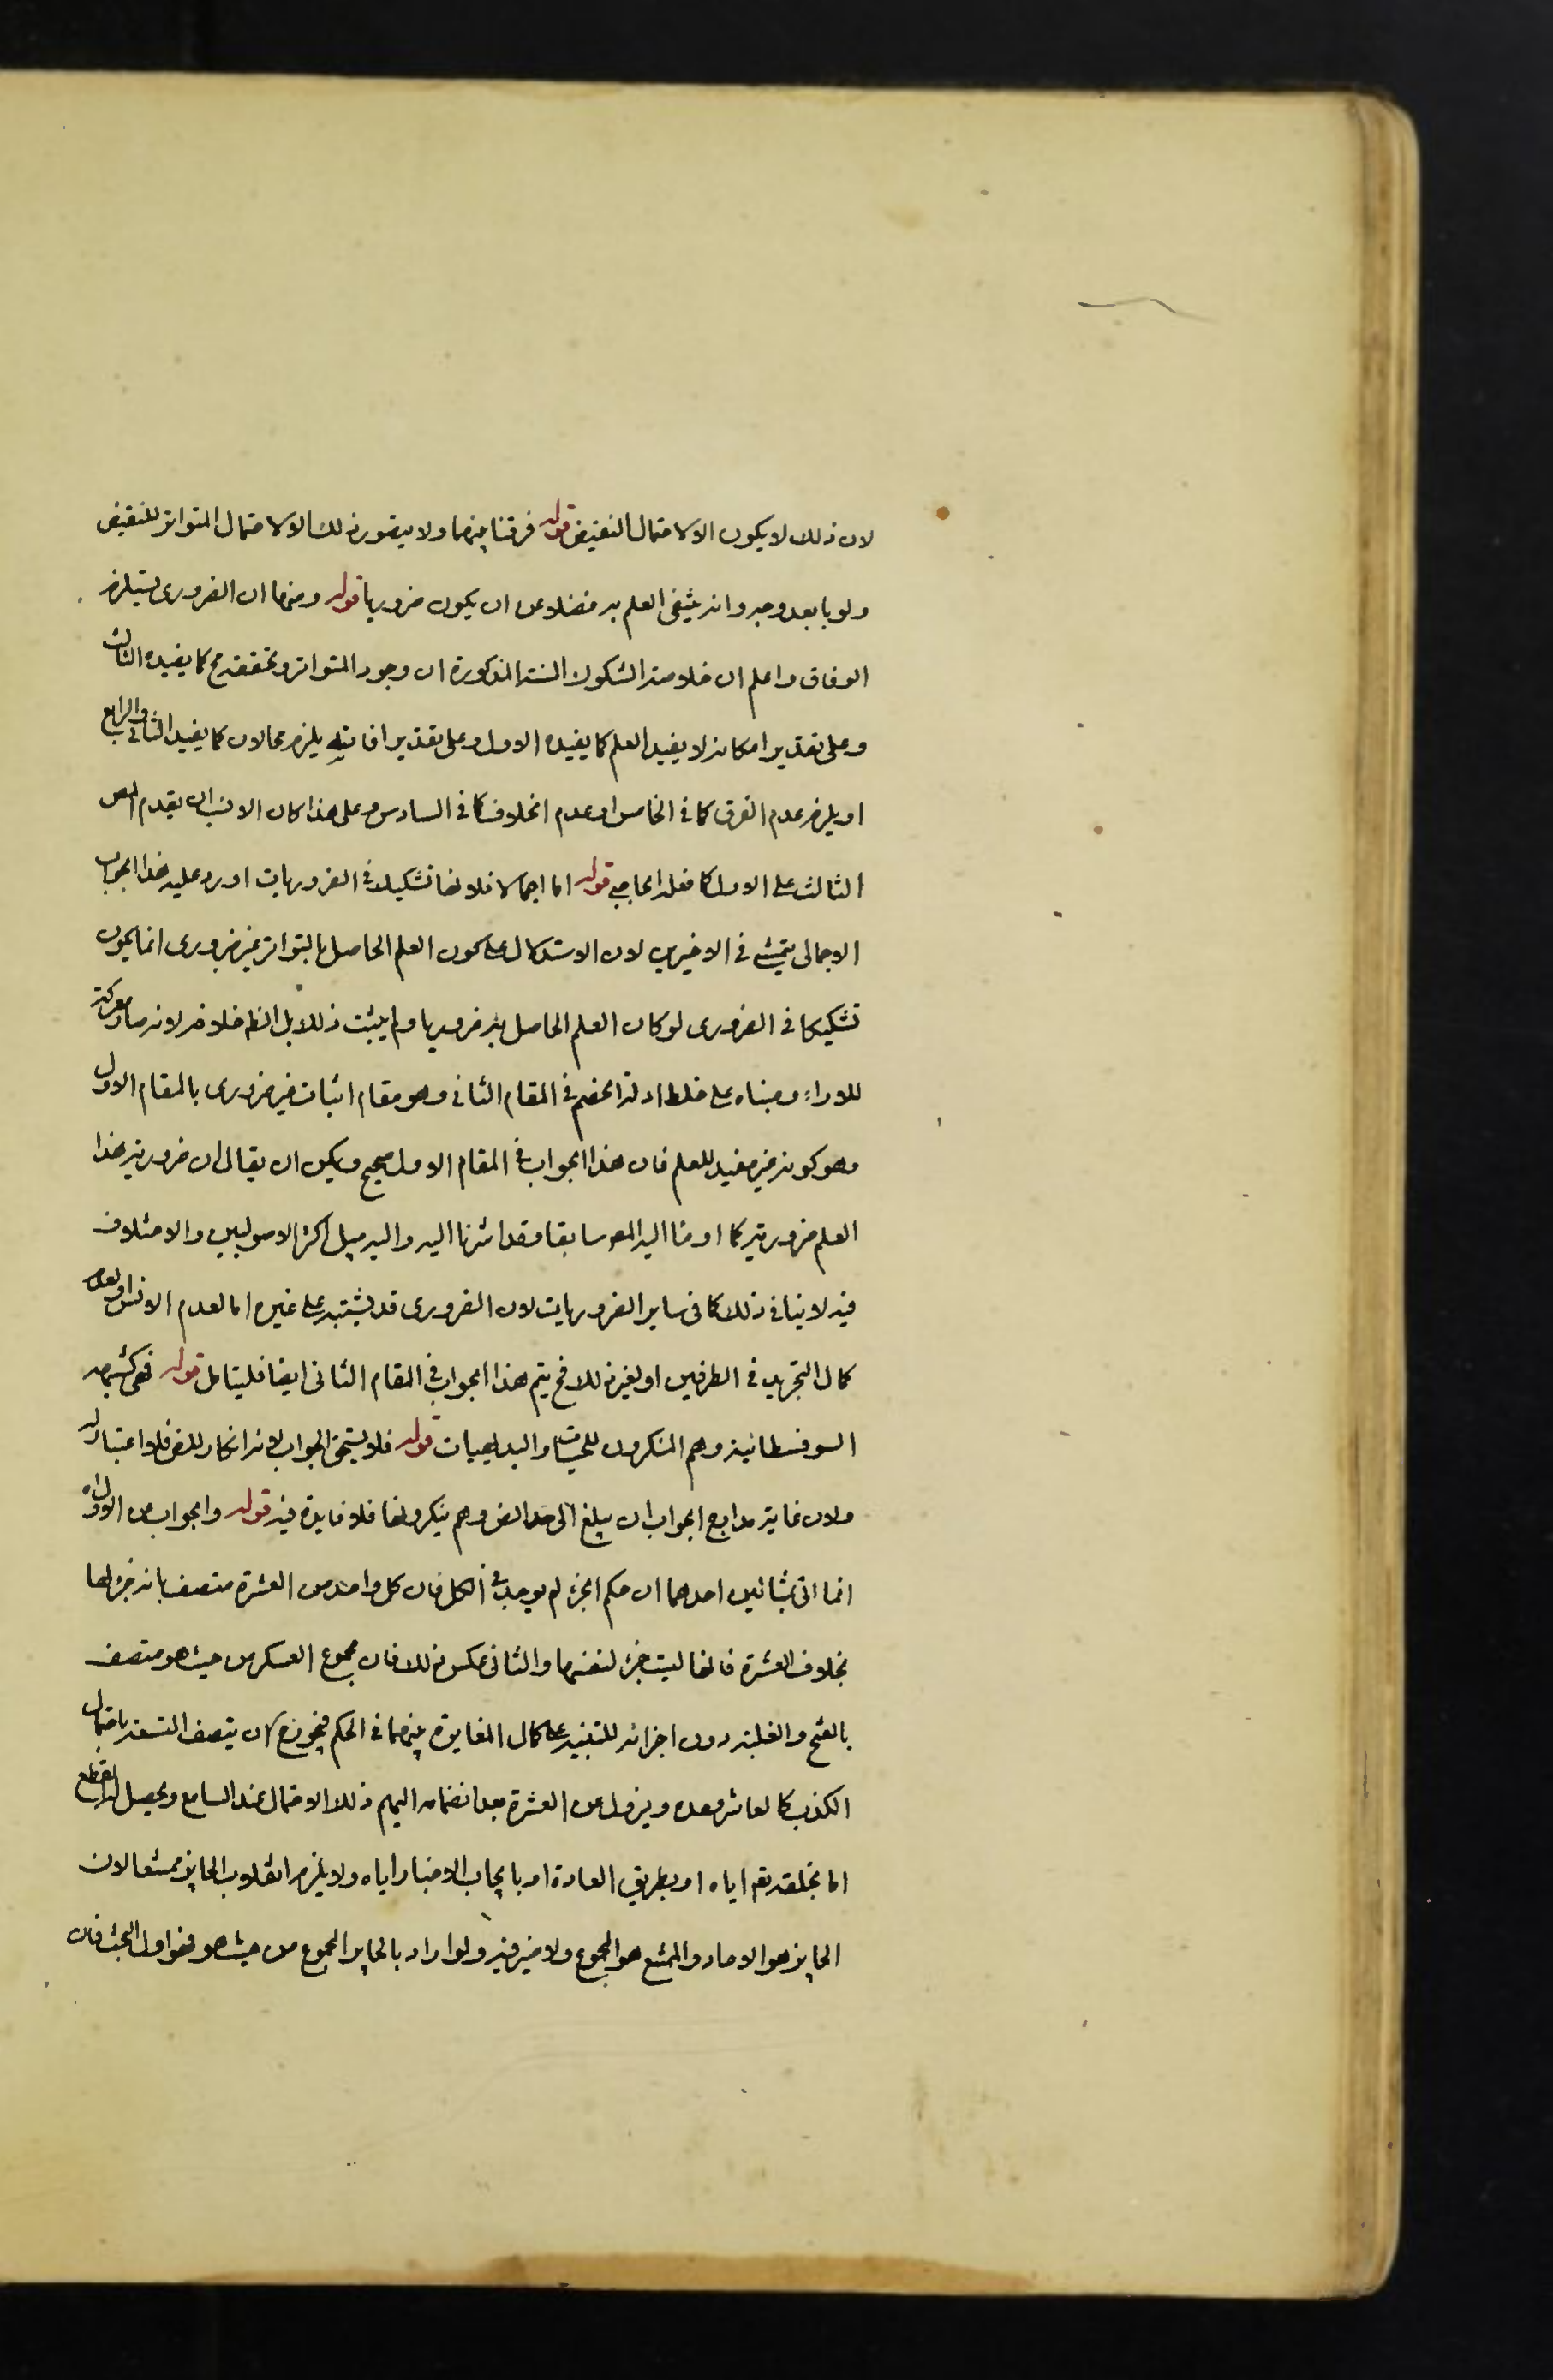 لان ذلك لا يكون الا لاحتمال النقيض قوله فرقنا بينهما ولا يتصور ذلك الا لاحتمال المتواتر للنقيض
ولو بابعد وجه وانه ينفى العلم به فضلا عن ان يكون ضروريا قوله ومنها ان الضرورى يستلزم
الوفاق واعلم ان خلاصة الشكوك الستة المذكورة ان وجود المتواتر وتحققه مح كما يفيده الثالث
وعلى تقدير امكانه لا يفيد العلم كما يفيده الاول وعلى تقدير افادته يلزم محالان كما يفيد الثانى والرابع
او يلزم عدم الفرق كما فى الخامس او عدم الخلاف كما فى السادس وعلى هذا كان الانسب ان يقدم المص
الثالث على الاول كما فعله الحاجبى قوله اما اجمالا فلانها تشكيك فى الضروريات اورد عليه هذا الجواب
الاجمالى يتمشى فى الاخيرين لان الاستدلال على كون العلم الحاصل بالتواتر غير ضرورى انما يكون
تشكيكا فى الضرورى لو كان العلم الحاصل به ضروريا ولم يثبت ذلك بل الظ خلافه لانه صار معركة
للاراء ومبناه على خلط ادلة الخصم فى المقام الثانى وهو مقام اثبات غير ضرورى بالمقام الاول
وهو كونه غير مفيد للعلم فان هذا الجواب فى المقام الاول صحيح ويمكن ان يقال ان ضرورية هذا
العلم ضرورية كما اومأ اليه المص سابقا وقد اشرنا اليه واليه ميل اكثر الاصوليين والاختلاف
فيه لا ينافى ذلك كما فى ساير الضروريات لان الضرورى قد يشتبه على غيره اما لعدم الانس او لعدم
كمال التجريد فى الطرفين او لغير ذلك فح يتم هذا الجواب فى المقام الثانى ايضا فليتامل قوله فهى كشبهة
السوفسطائية وهم المنكرون للحسيات والبديهيات قوله فلا يستحق الجواب لانه انكار للض فلا اعتبار له
ولان غاية مدارج الجواب ان يبلغ الى حد الض وهم ينكرونها فلا فايدة فيه قوله والجواب عن الاول اه
انما اتى بمثالين احدهما ان حكم الجزء لم يوجد فى الكل فان كل واحد من العشرة متصف بانه جزء لها
بخلاف العشرة فانها ليست جزء لنفسها والثانى عكس ذلك فان مجموع العسكر من حيث هو متصف
بالفتح والغلبة دون اجزائه للتنبيه على كمال المغايرة بينهما فى الحكم فيجوز ح ان يتصف التسعة باحتمال
الكذب كالعاشر وحده ويزول عن العشرة بعد انضمامه اليهم ذلك الاحتمال عند السامع ويحصل له القطع
اما بخلقه تع اياه او بطريق العادة او بايجاب الاخبار اياه ولا يلزم انقلاب الجايز ممتنعا لان
الجايز هو الاحاد والممتنع هو المجموع ولا ضير فيه ولو اراد بالجايز المجموع من حيث هو فهو اول البحث فان